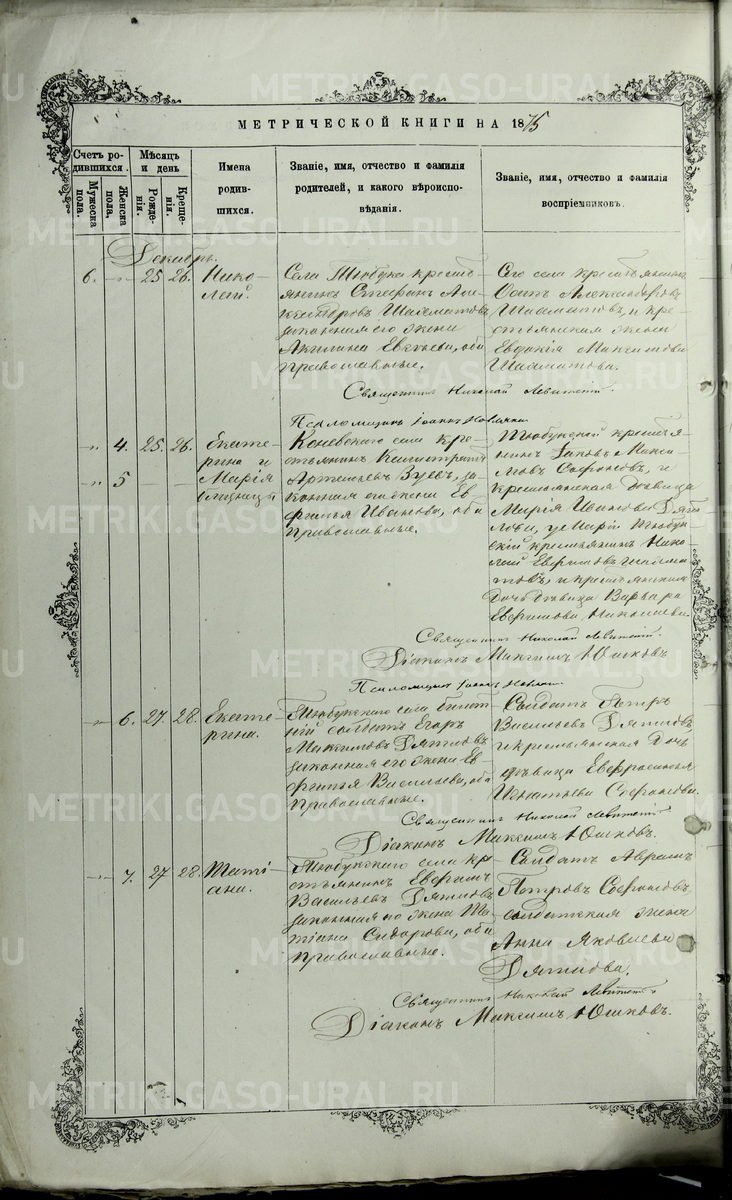 МЕТРИЧЕСКОЙ КНИГИ НА 1875
Счетъ родившихся.
Мужеска пола.
Женска пола,
Мѣсяцъ и день
Рожденія.
Крещенія.
Имена
родив-
шихся.
Званіе, имя, отчество и фамилія
родителей, и какого вѣроиспо-
вѣданія.
Званіе, имя, отчество и фамилія
воспріемниковъ.
Декабрь.
6. " 25 26. Нико-
лай.
Села Тюбука кресть-
янинъ Стефанъ Але-
ксандровъ Шахматовъ
законная его жена
Акилина Евгеньева, оба
Православные.
Сего села крестьянинъ
Александровъ
Шахматовъ, и кре-
стьянская жена
Евдокія Максимова
Шахматова.
Священникъ Николай Левитскій.
Псаломщикъ Іоаннъ
" 4. 25. 26. Екате-
рина и
" 5 Марія
близнецы
Коневскаго села кре-
стьянинъ Калистратъ
Артемьевъ Зуевъ, за-
конная его жена Ев-
фимья Иванова, оба
Православные.
Тюбукской крестья-
нинъ Іаковъ Макси-
мовъ Софоновъ, и
крестьянская дѣвица
Марія Иванова Дятло-
лова, у Маріи Тюбук-
скій крестьянинъ Нико-
лай Евфимовъ Шахма-
товъ, и крестьянская
дочь дѣвица Варвара
Евфимова Николаева
Священникъ Николай Левитскій.
Діаконъ Максимъ Юшковъ
Псаломщикъ Іоаннъ
" 6. 27. 28. Екате-
рина.
Тюбукскаго села билет-
ный солдатъ Егоръ
Максимовъ Дятловъ
законная его жена Ев-
фимья Васильева, оба
Православные.
Солдатъ Петръ
Васильевъ Дятловъ,
и крестьянская дочь
дѣвица Евфросинья
Игнатьева Софонова.
Священникъ Николай Левитскій
Діаконъ Максимъ Юшковъ.
" 7. 27 28. Таті-
ана.
Тюбукскаго села кре-
стьянинъ Евфимъ
Васильевъ Дятловъ
законная его жена Та-
тіана Сидорова, оба
Православные.
Солдатъ Аврамъ
Петровъ Софоновъ,
солдатская жена
Анна Яковлева
Дятлова.
Священникъ Николай Левитскій
Діаконъ Максимъ Юшковъ.
METRIKI.GASO-URAL.RU